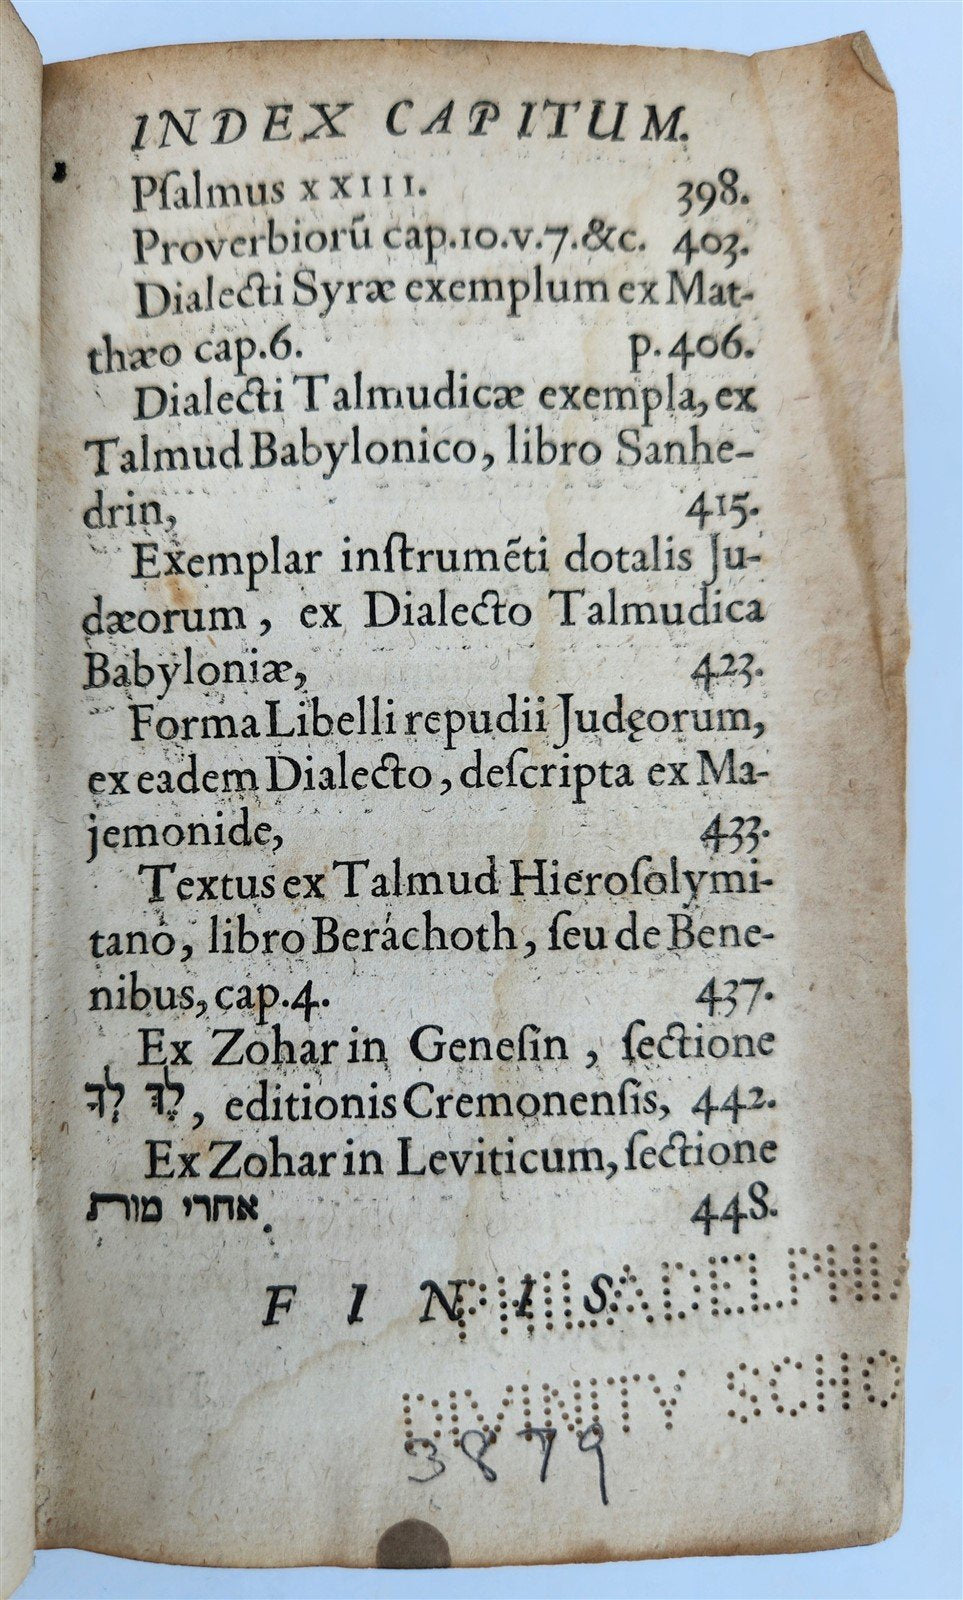 INDEX CAPITUM.
Pſalmus XXIII. 398.
Proverbiorū cap.10.v.7.&c. 403.
Dialecti Syræ exemplum ex Mat-
thæo cap.6. p.406.
Dialecti Talmudicæ exempla, ex
Talmud Babylonico, libro Sanhe-
drin, 415.
Exemplar inſtrumēti dotalis Ju-
dæorum, ex Dialecto Talmudica
Babyloniæ, 423.
Forma Libelli repudii Judęorum,
ex eadem Dialecto, deſcripta ex Ma-
jemonide, 433.
Textus ex Talmud Hieroſolymi-
tano, libro Beráchoth, ſeu de Bene-
nibus, cap.4. 437.
Ex Zohar in Geneſin, ſectione
לֶךְ לְךָ, editionis Cremonenſis, 442.
Ex Zohar in Leviticum, ſectione
אחרי מורת. 448.
FINIS
PHILADELPHIA
DIVINITY SCHO
3879